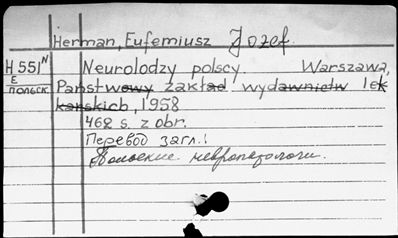 Herman, Eufemiusz Jozef.
H 551 N Neurolodzy polscy. Warszawa,
E
польск. Państwowy zakład wydawnictw lekarskich, 1958
462 s. z obr.
Перевод загл.:
Польские невропатологи.